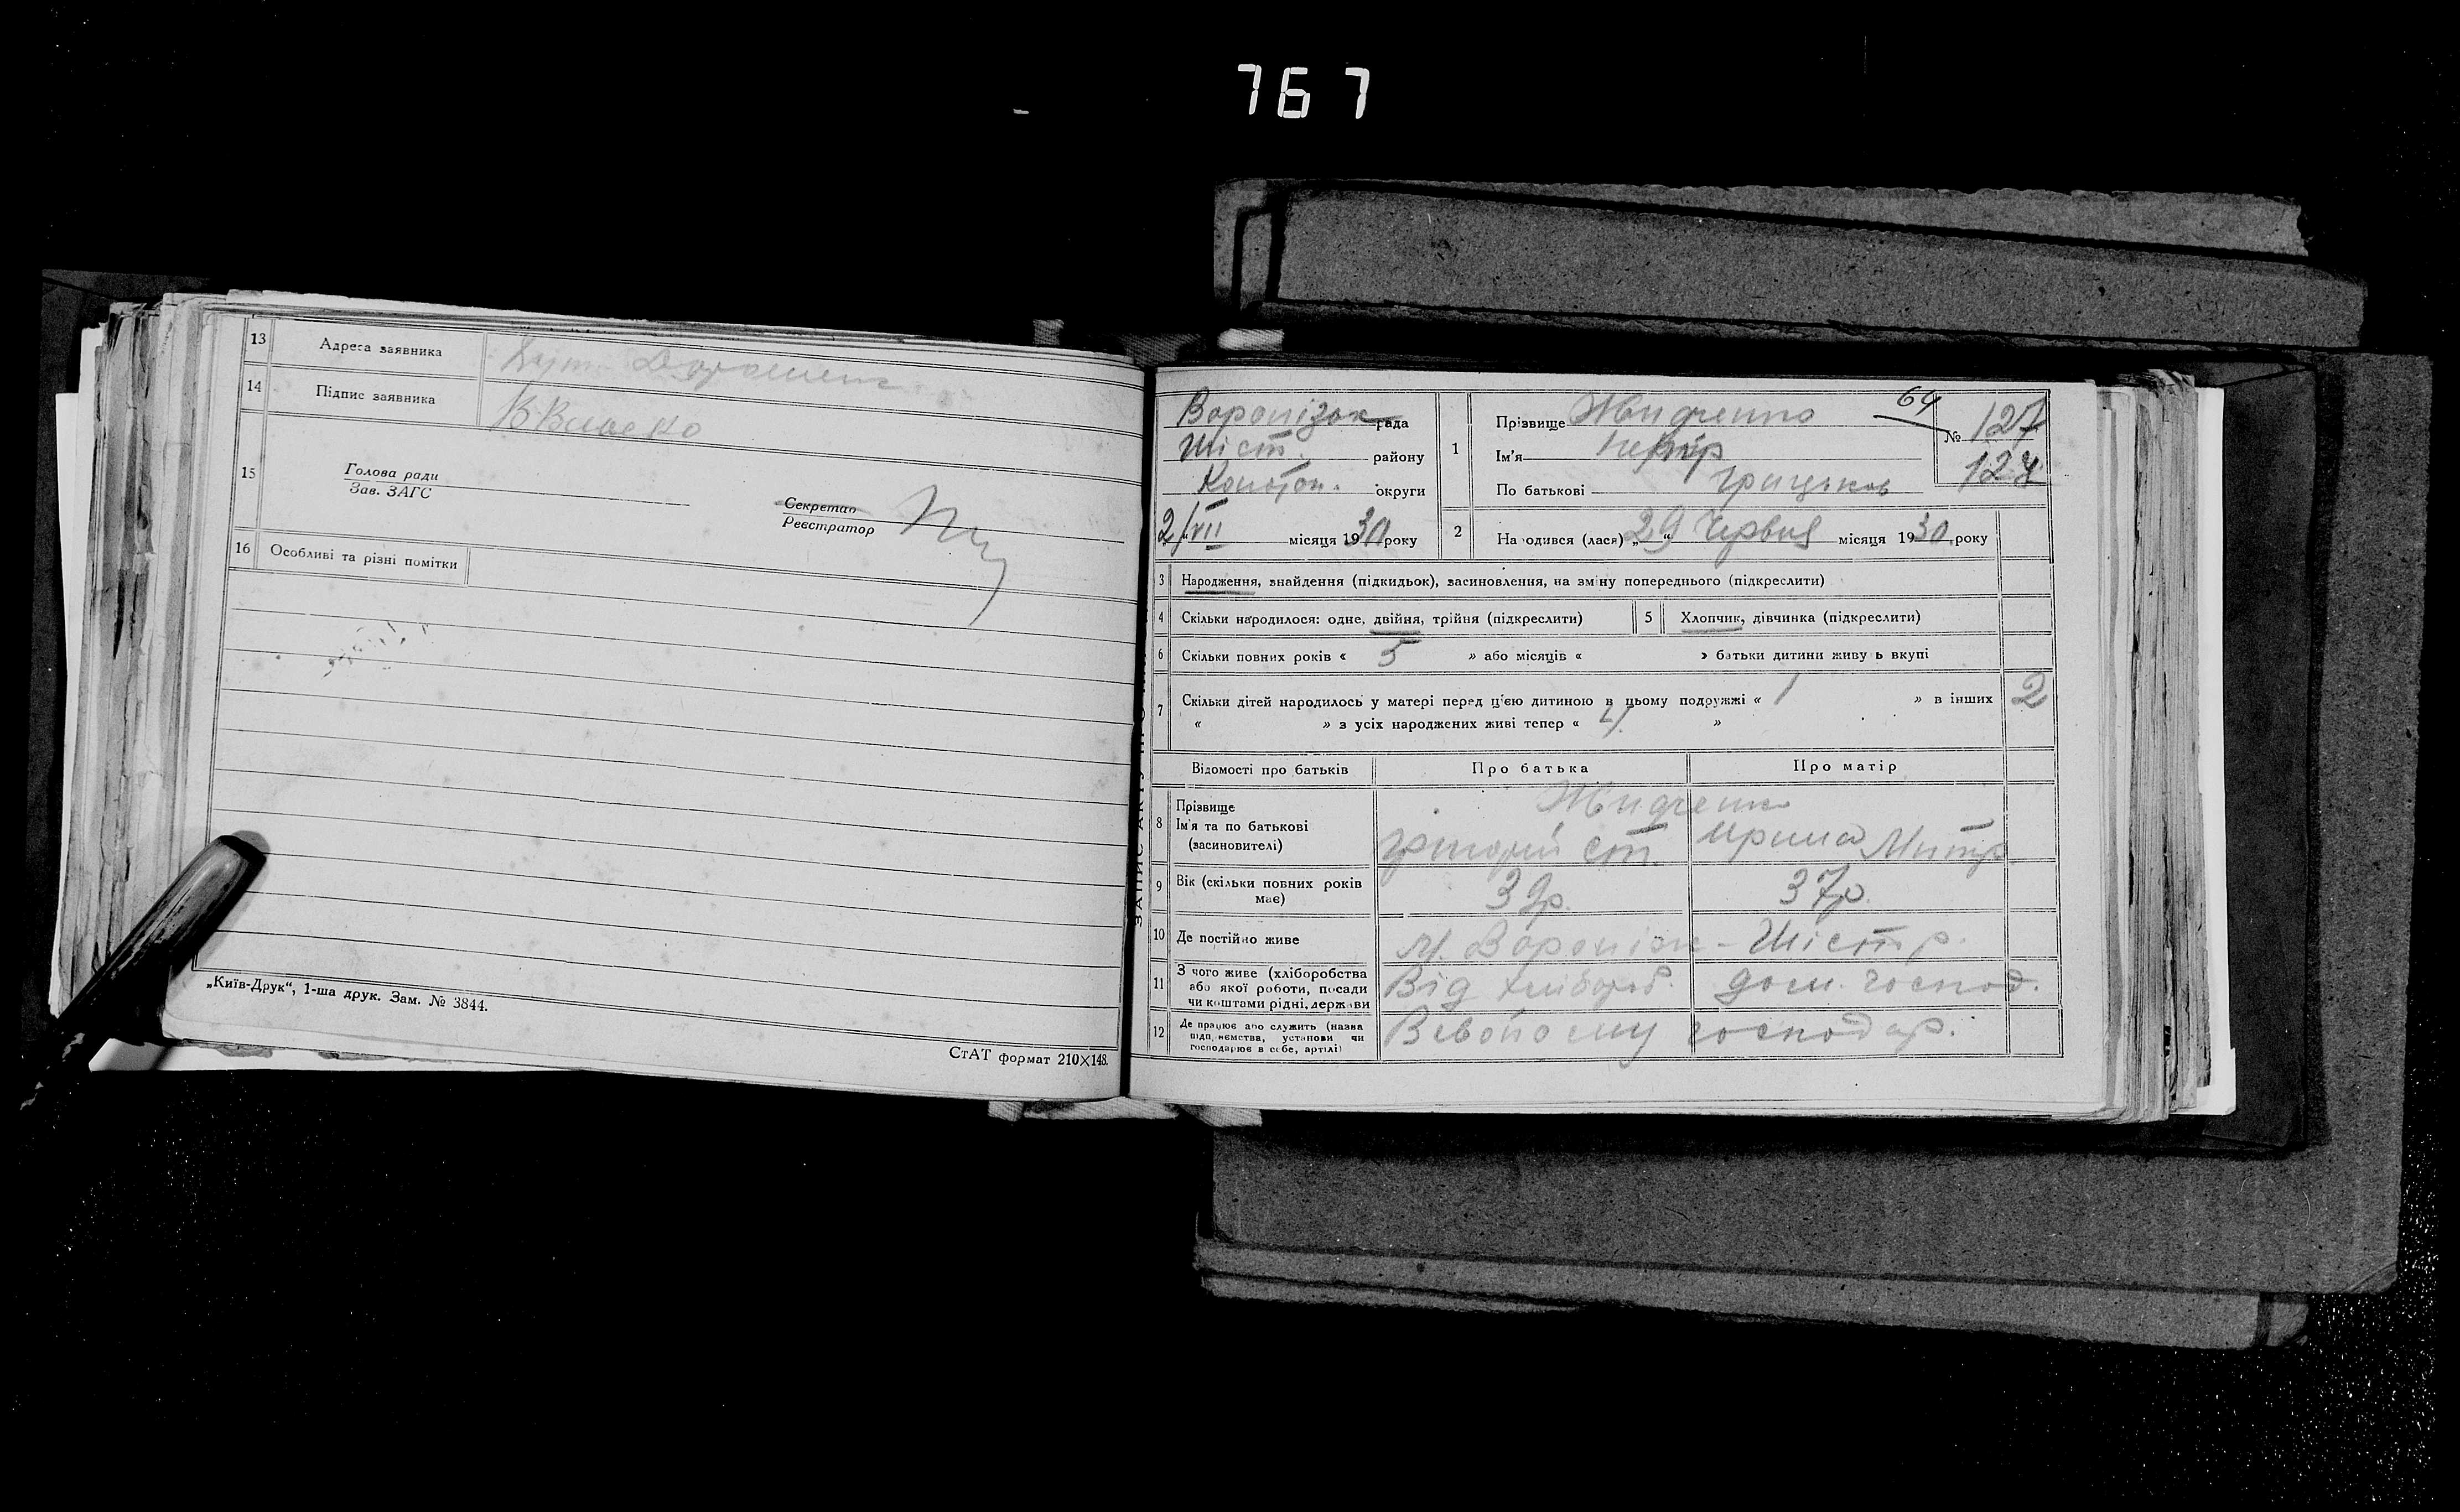 767
13 Адреса заявника Кут.
14 Підпис заявника
15 Голова ради
Зав. ЗАГС
Секретар
Реєстратор
16 Особливі та різні помітки
„Київ-Друк“, 1-ша друк. Зам. № 3844.
СтАТ формат 210×148.
Воропізок рада
Шіст. району
Конотоп. округи
2/VII місяця 1930 року
64
1 Прізвище Жидченко
Ім'я Петр
По батькові Грицьков
№ 127
124
2 На одився (лася) „29“ Червня місяця 1930 року
3 Народження, знайдення (підкидьок), засиновлення, на зміну попереднього (підкреслити)
4 Скільки народилося: одне, двійня, трійня (підкреслити)
5 Хлопчик, дівчинка (підкреслити)
6 Скільки повних років « 5 » або місяців « » батьки дитини живу ь вкупі
7 Скільки дітей народилось у матері перед цією дитиною в цьому подружжі « 1 » в інших 2
« » з усіх народжених живі тепер « 4 »
Відомості про батьків Про батька Про матір
8 Прізвище Жидченко
Ім'я та по батькові
(засиновителі) Григорій Ст. Ирина Митр
9 Вік (скільки повних років
має) 39р. 37р.
10 Де постійно живе М. Вороніж - Шістр.
11 З чого живе (хліборобства
або якої роботи, посади
чи коштами рідні, держави Від хлібороб. дом. господ.
12 Де працює або служить (назва
підп. иємства, установи чи
господарює в себе, артілі) В свойому господар.